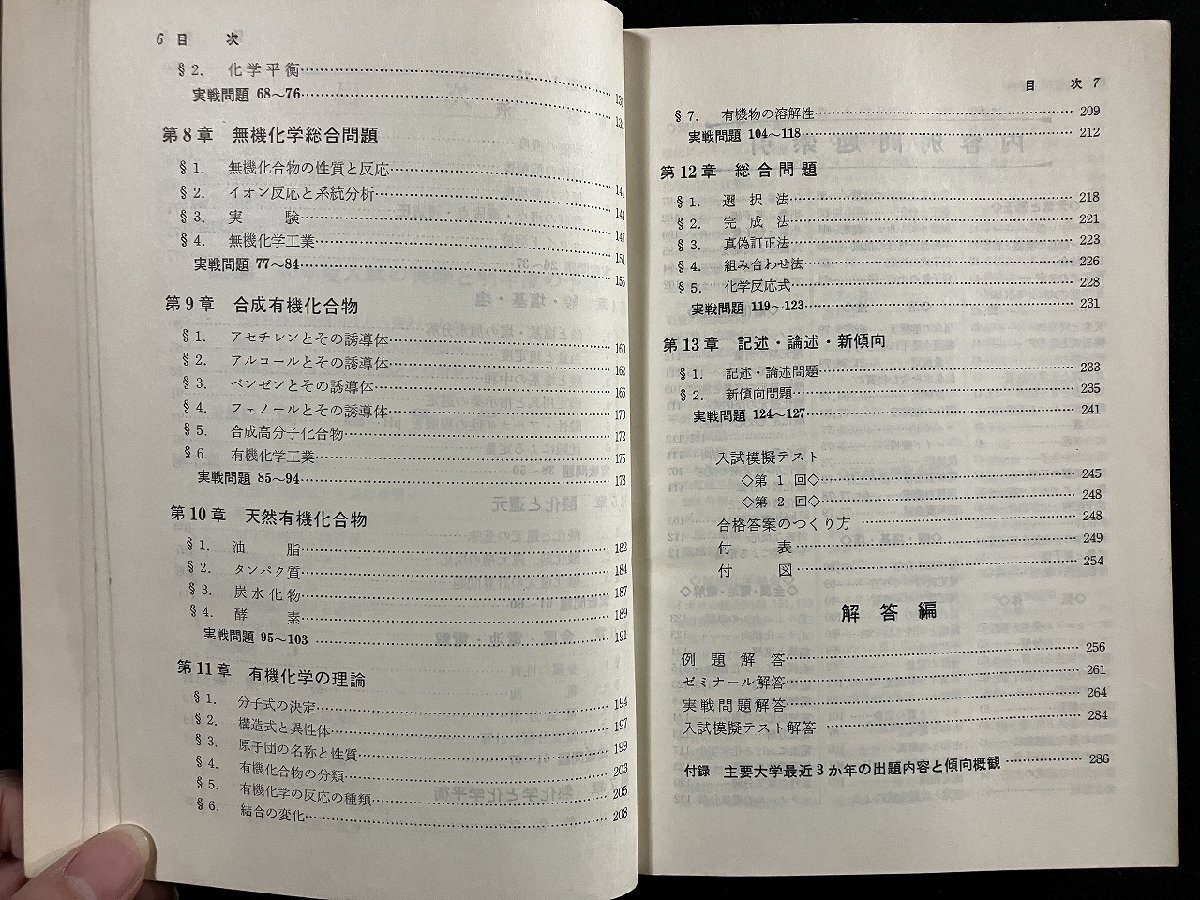 6 目 次
§2. 化学平衡
実戦問題 68～76
第8章 無機化学総合問題
§1. 無機化合物の性質と反応
§2. イオン反応と系統分析
§3. 実験
§4. 無機化学工業
実戦問題 77～84
第9章 合成有機化合物
§1. アセチレンとその誘導体
§2. アルコールとその誘導体
§3. ベンゼンとその誘導体
§4. フェノールとその誘導体
§5. 合成高分子化合物 173
§6. 有機化学工業
実戦問題 85～94
第10章 天然有機化合物
§1. 油脂 182
§2. タンパク質 184
§3. 炭水化物 187
§4. 酵素 189
実戦問題 95～103 191
第11章 有機化学の理論
§1. 分子式の決定 194
§2. 構造式と異性体 197
§3. 原子団の名称と性質 199
§4. 有機化合物の分類 203
§5. 有機化学の反応の種類 205
§6. 結合の変化 208
目 次 7
§7. 有機物の溶解性 209
実戦問題 104～118 212
第12章 総合問題
§1. 選択法 218
§2. 完成法 221
§3. 真偽訂正法 223
§4. 組み合わせ法 226
§5. 化学反応式 228
実戦問題 119～123 231
第13章 記述・論述・新傾向
§1. 記述・論述問題 233
§2. 新傾向問題 235
実戦問題 124～127 241
入試模擬テスト
◇第1回◇ 245
◇第2回◇ 248
合格答案のつくり方 248
付表 249
付図 254
解答編
例題解答 256
ゼミナール解答 261
実戦問題解答 264
入試模擬テスト解答 284
付録 主要大学最近3か年の出題内容と傾向概観 286